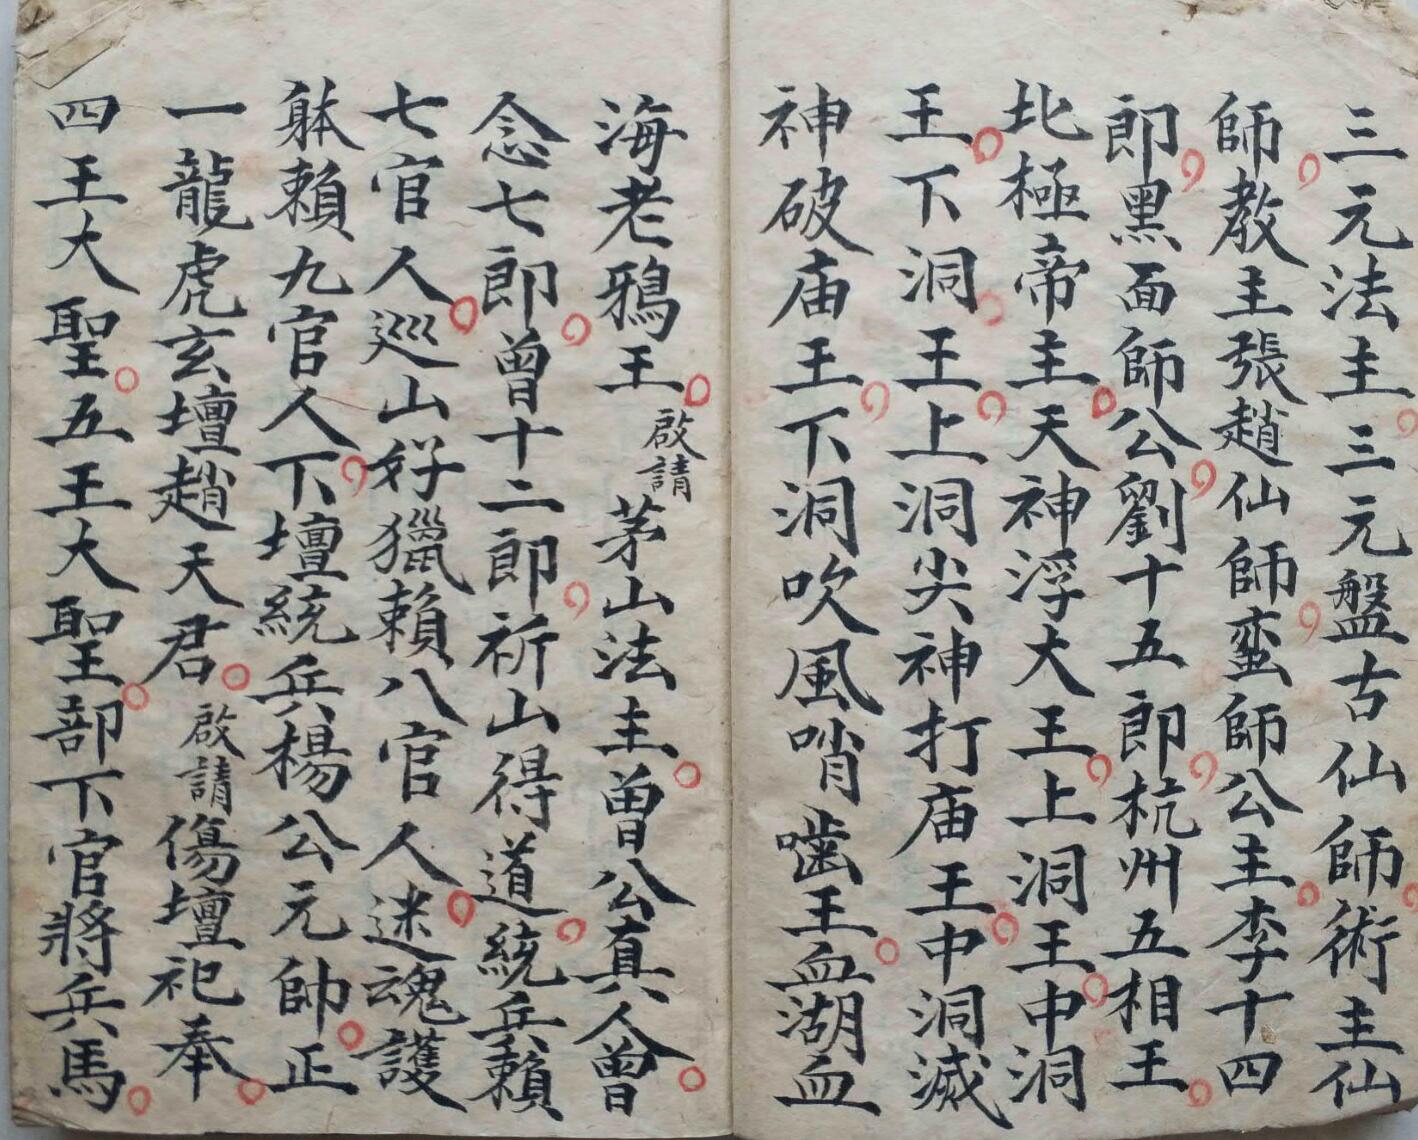 三元法主三元盤古仙師術主仙
師教主張趙仙師蛮師公主李十四
郎黑面師公劉十五郎杭州五相王
北極帝主天神浮大王上洞王中洞
王下洞王上洞尖神打庙王中洞滅
神破庙王下洞吹風哨嚙王血湖血
海老鴉王啟請茅山法主曾公真人曾
念七郎曾十二郎祈山得道統兵賴
七官人巡山好獵賴八官人迷魂護
躰賴九官人下壇統兵楊公元帥正
一龍虎玄壇趙天君啟請傷壇祀奉
四王大聖五王大聖部下官將兵馬